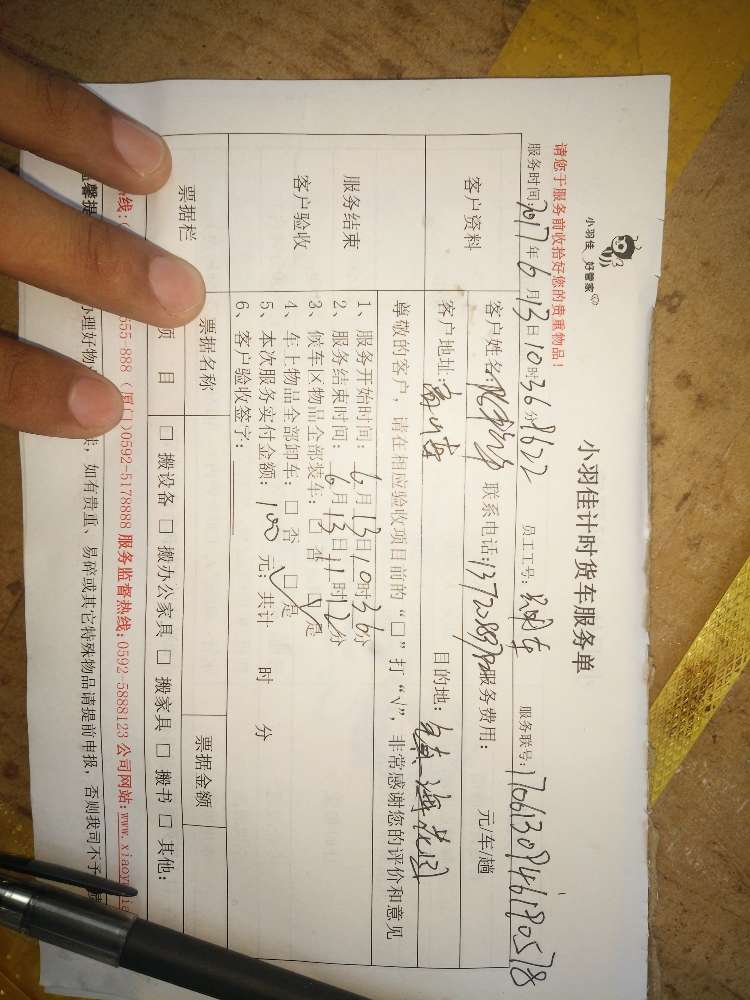 小羽佳 好管家
小羽佳计时货车服务单
请您于服务前收拾好您的贵重物品！
服务时间:2017年6月13日10时36分 8622 员工工号: 服务联号:
客户资料
客户姓名: 联系电话: 服务费用: 元/车/趟
客户地址: 目的地: 镇海花园
服务结束
客户验收
尊敬的客户，请在相应验收项目前的“□”打“√”，非常感谢您的评价和意见
1、服务开始时间: 6月13日10时36分
2、服务结束时间: 6月13日11时12分
3、候车区物品全部装车: □ 否 □ 是
4、车上物品全部卸车: □ 否 □ 是
5、本次服务实付金额: 100 元；共计 时 分
6、客户验收签字:
票据栏
票据名称 票据金额
项 目 □ 搬设备 □ 搬办公家具 □ 搬家具 □ 搬书 □ 其他:
热线: 555-888 (厦门)0592-5178888 服务监督热线:0592-5888123 公司网站:www.xiaoy
馨提 办理好物 如有贵重、易碎或其它特殊物品请提前申报，否则我司不予